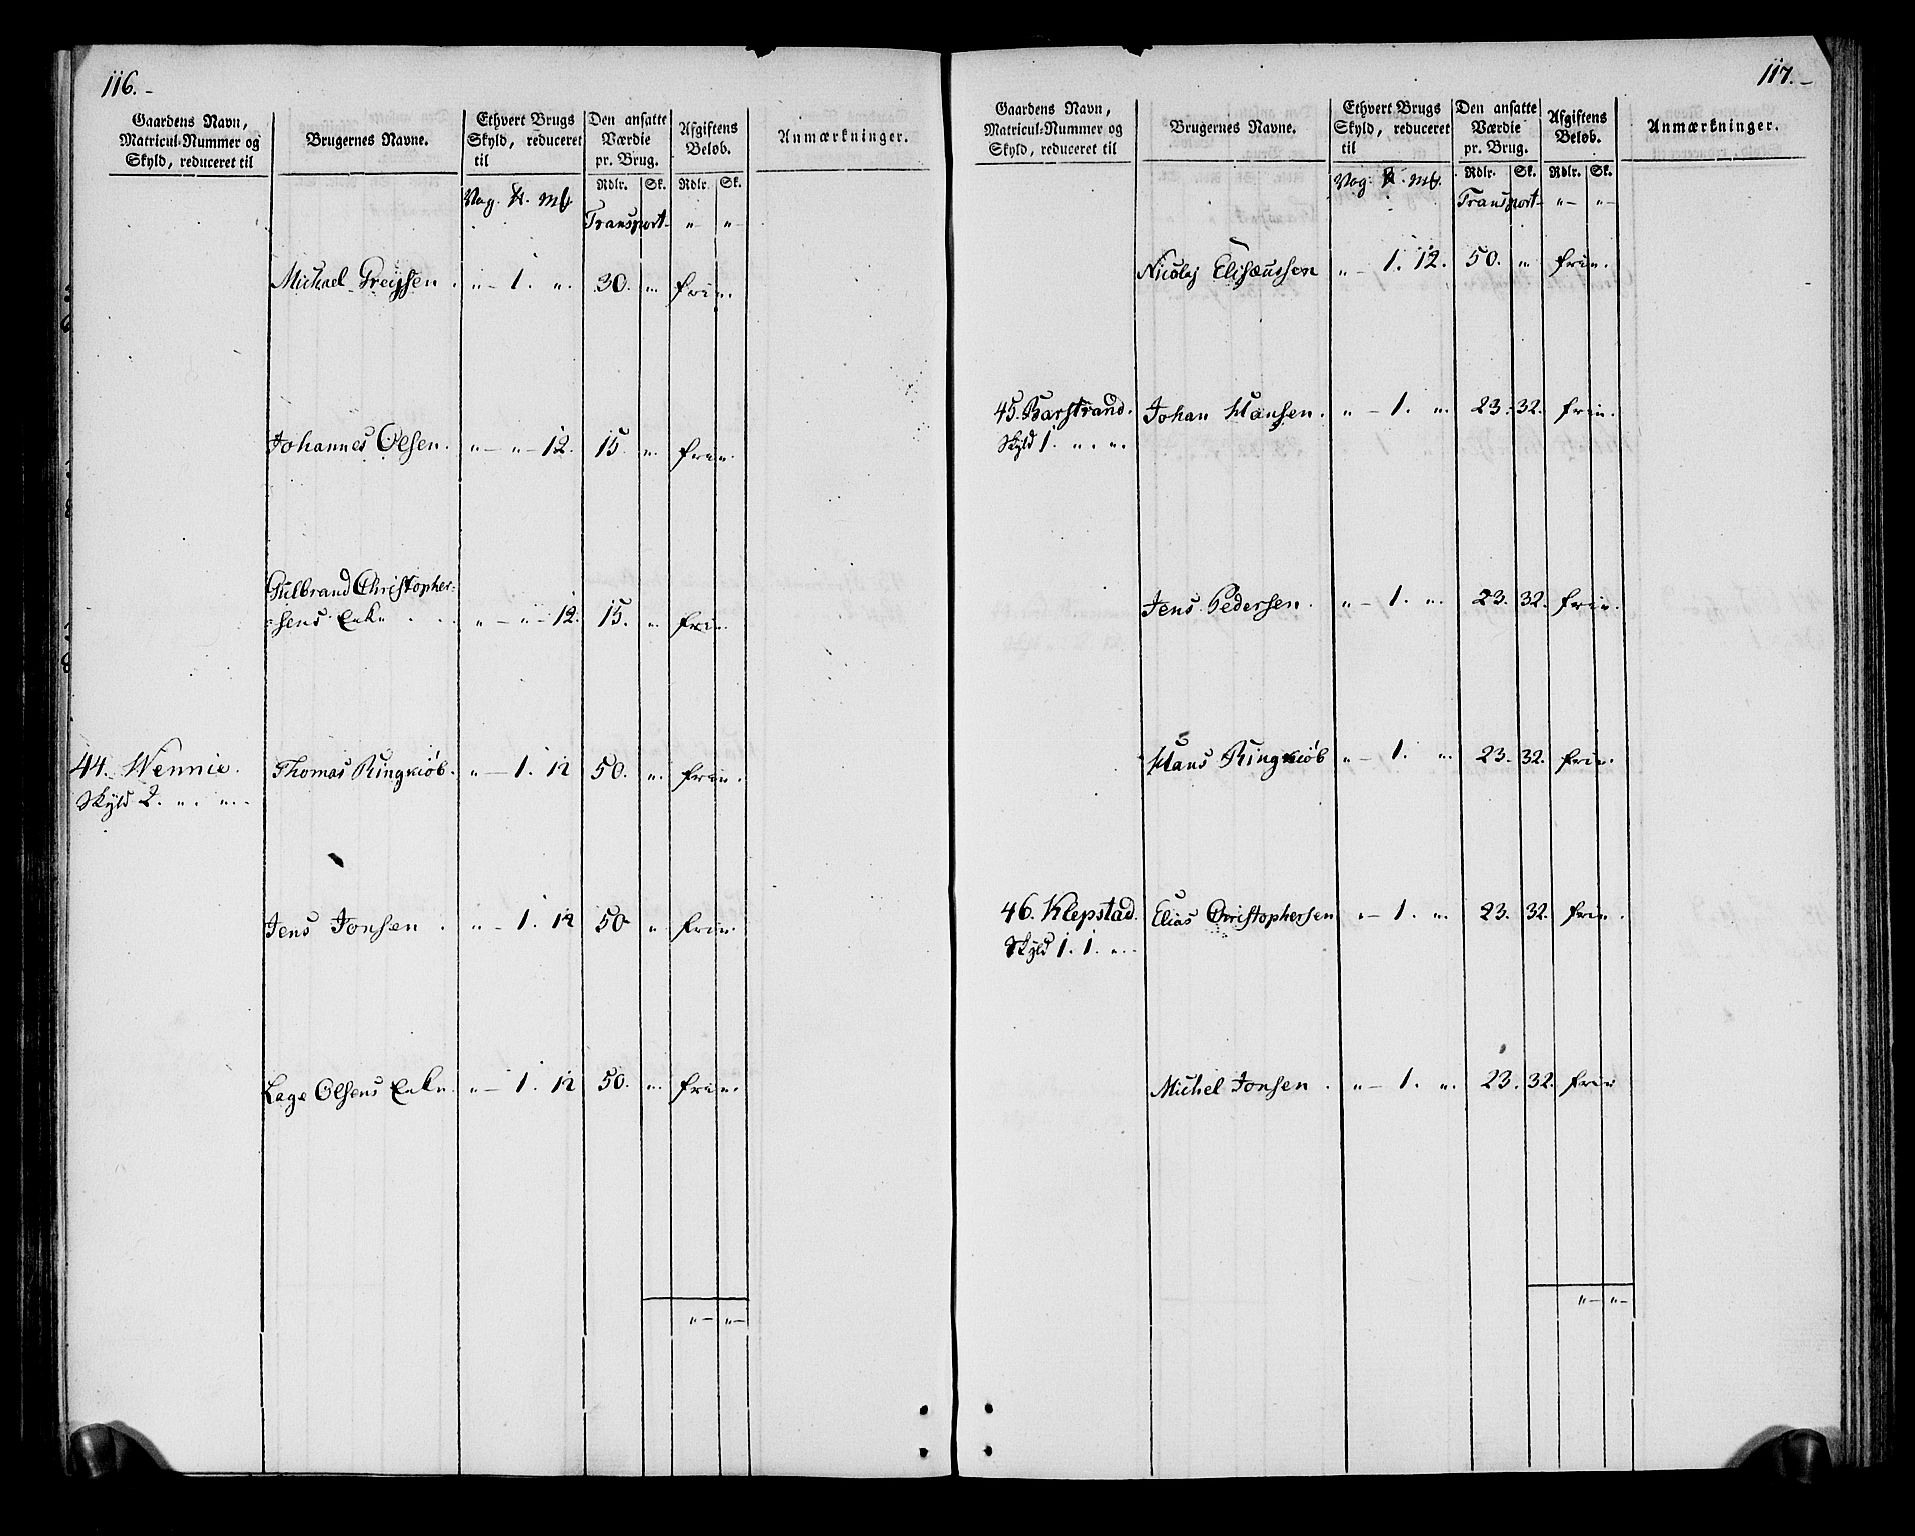 116.-
Gaardens Navn, Matricul-Nummer og Skyld, reduceret til
Brugernes Navne.
Ethvert Brugs Skyld, reduceret til
Den ansatte Værdie pr. Brug.
Afgiftens Beløb.
Anmærkninger.
Rdlr. Sk. Rdlr. Sk.
Vog. mk.
Transport- „ „-
Michael Greysen. „- 1. „. 30. „. frie.
Johannes Olsen. „- „- 12. 15. „. frie.
Gulbrand Christopher-
sens Enke . . „- „- 12. 15. „. frie.
44. Wennie. Thomas Ringkiøb. „- 1. 12 50. „. frie.
Skyld 2. „. „.
Jens Jonsen . „- 1. 12 50 „ frie.
Lage Olsens Enke. „- 1. 12 50. „. frie.
„- „-
117.-
Gaardens Navn, Matricul-Nummer og Skyld, reduceret til
Brugernes Navne.
Ethvert Brugs Skyld, reduceret til
Den ansatte Værdie pr. Brug.
Afgiftens Beløb.
Anmærkninger.
Rdlr. Sk. Rdlr. Sk.
Vog. mk.
Transport- „- „-
Nicolaj Elisæussen „- 1. 12. 50. „ frie.
45. Barstrand. Johan Hansen. „- 1. „. 23. 32. frie.
Skyld 1. „. „.
Jens Pedersen. „- 1. „. 23. 32. frie.
Hans Ringkiøb „- 1. „. 23. 32. frie.
46. Klepstad. Elias Christophersen „- 1. „. 23. 32. frie.
Skyld 1. 1. „.
Michel Jonsen . „- 1. „. 23. 32. frie
„- „-